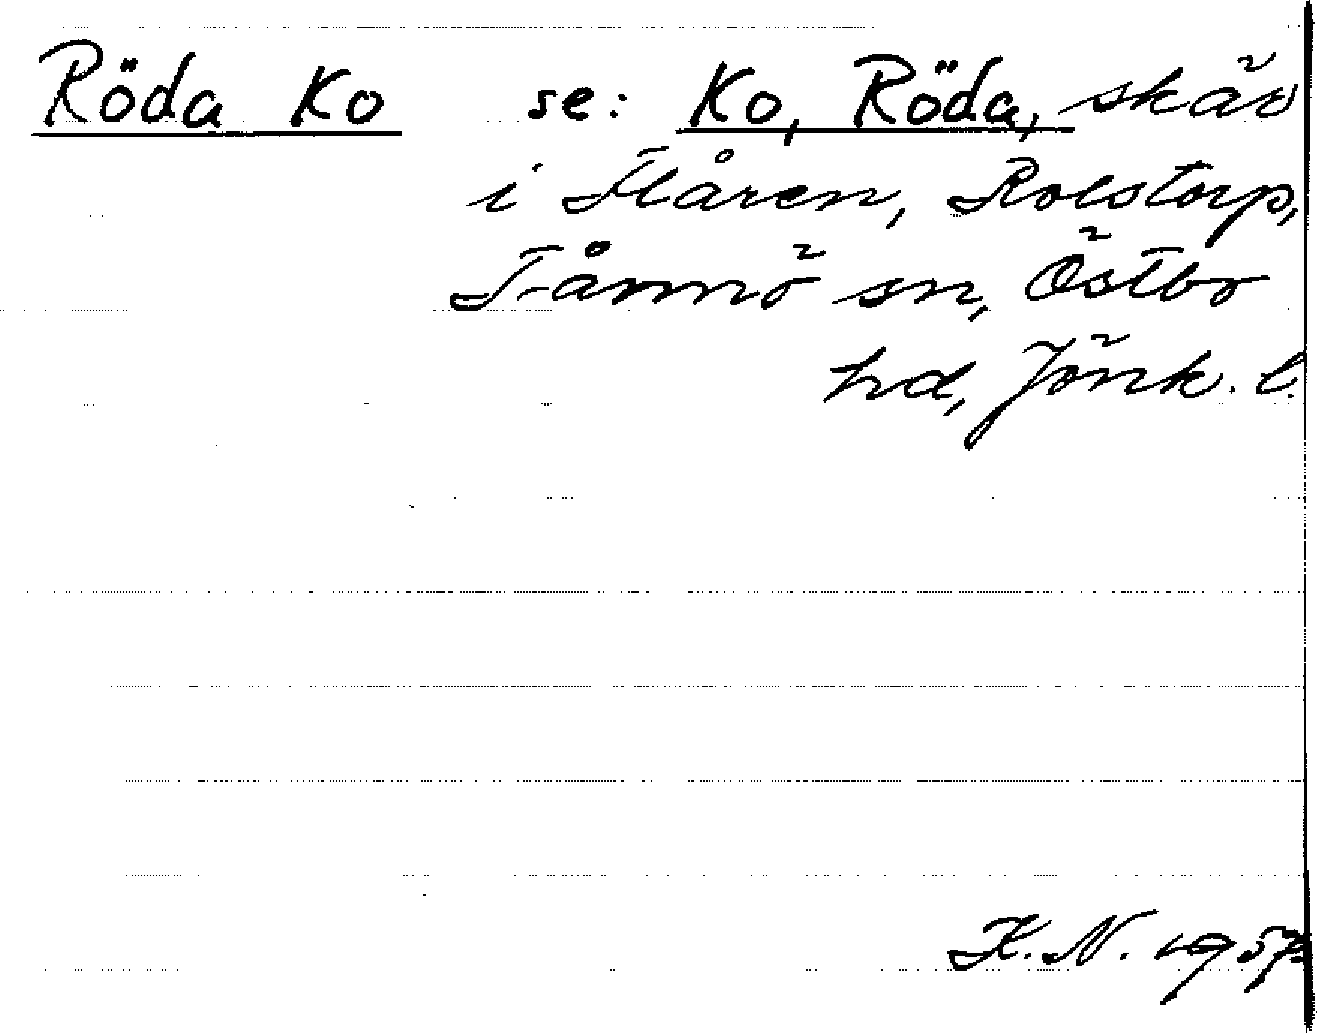 Röda Ko se: Ko, Röda, skär
i Flåren, Rolstorp,
Tånnö sn, Östbo
hd, Jönk. l.
K. N. 1957